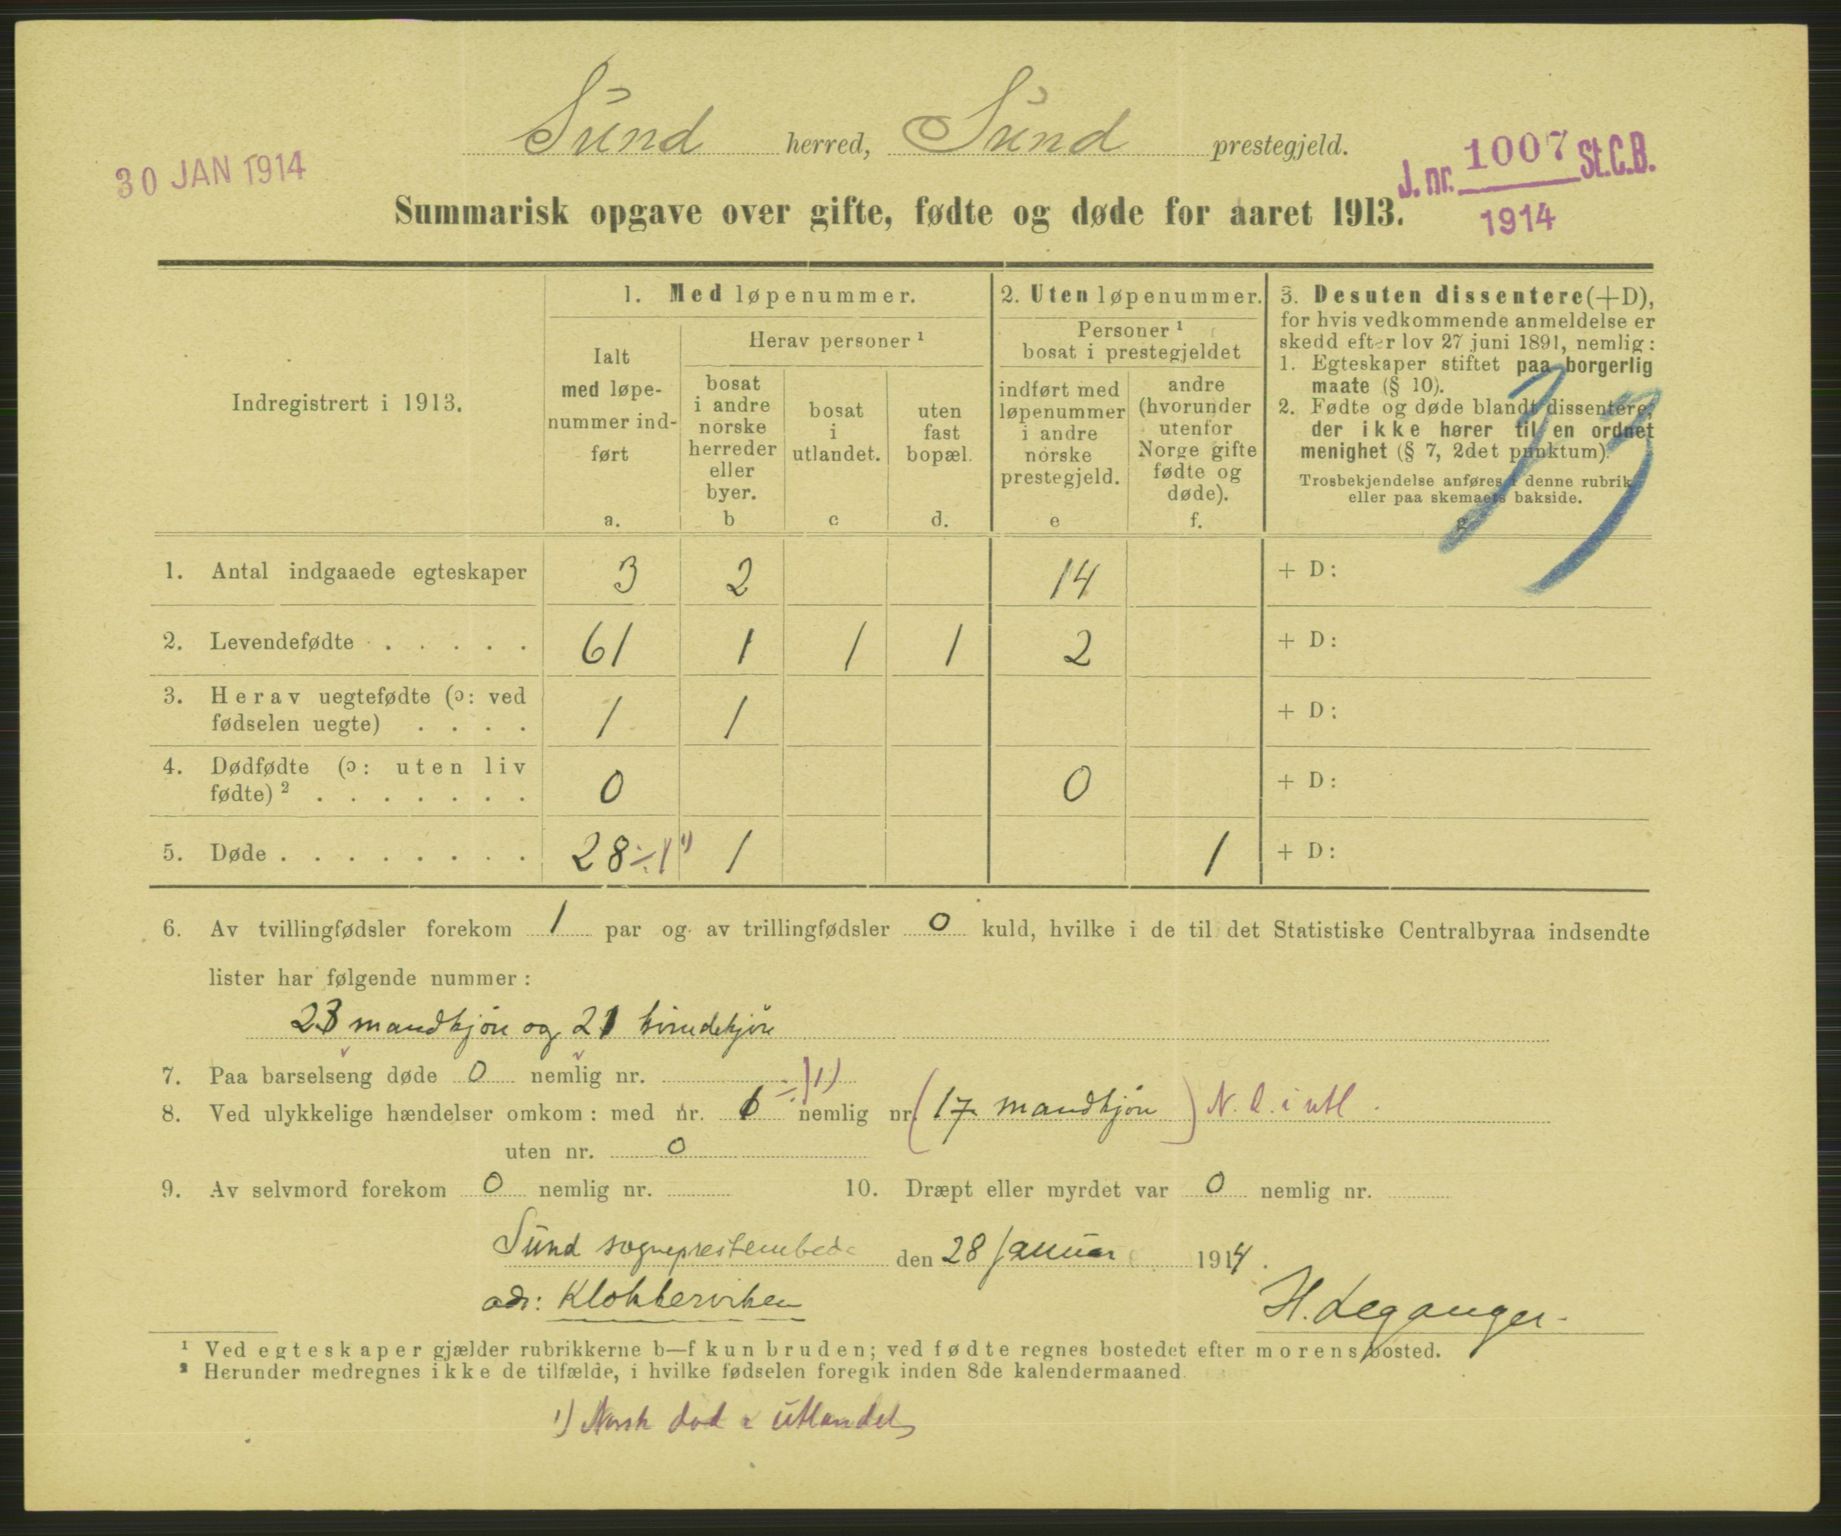 Sund herred, Sund prestegjeld.
30 JAN 1914
J. nr. 1007 St.C.B.
1914
Summarisk opgave over gifte, fødte og døde for aaret 1913.
Indregistrert i 1913.
1. Med løpenummer.
Ialt
med løpe-
nummer ind-
ført
a.
Herav personer ¹
bosat
i andre
norske
herreder
eller
byer.
b
bosat
i
utlandet.
c
uten
fast
bopæl.
d.
2. Uten løpenummer.
Personer ¹
bosat i prestegjeldet
indført med
løpenummer
i andre
norske
prestegjeld.
e
andre
(hvorunder
utenfor
Norge gifte
fødte og
døde).
f.
3. Desuten dissentere (+D),
for hvis vedkommende anmeldelse er
skedd efter lov 27 juni 1891, nemlig:
1. Egteskaper stiftet paa borgerlig
maate (§ 10).
2. Fødte og døde blandt dissentere,
der ikke hører til en ordnet
menighet (§ 7, 2det punktum).
Trosbekjendelse anføres i denne rubrik
eller paa skemaets bakside.
g
1. Antal indgaaede egteskaper 3 2 14 + D:
2. Levendefødte . . . . . 61 1 1 1 2 + D:
3. Herav uegtefødte (ɔ: ved
fødselen uegte) . . . . 1 1 + D:
4. Dødfødte (ɔ: uten liv
fødte) ² . . . . . . . 0 0 + D:
5. Døde . . . . . . . . 28 ÷1 ¹) 1 1 + D:
6. Av tvillingfødsler forekom 1 par og av trillingfødsler 0 kuld, hvilke i de til det Statistiske Centralbyraa indsendte
lister har følgende nummer:
23 mandkjøn og 21 kvindekjøn
7. Paa barselseng døde 0 nemlig nr.
8. Ved ulykkelige hændelser omkom: med nr. 1 ÷1 ¹) nemlig nr. (17 mandkjøn) N. d. i utl.
uten nr. 0
9. Av selvmord forekom 0 nemlig nr. 10. Dræpt eller myrdet var 0 nemlig nr.
Sund sogneprestembede den 28 Januar 1914.
adr: Klokkerviken
H. Leganger.
¹ Ved egteskaper gjælder rubrikkerne b—f kun bruden; ved fødte regnes bostedet efter morens bosted.
² Herunder medregnes ikke de tilfælde, i hvilke fødselen foregik inden 8de kalendermaaned.
¹) Norsk død i utlandet